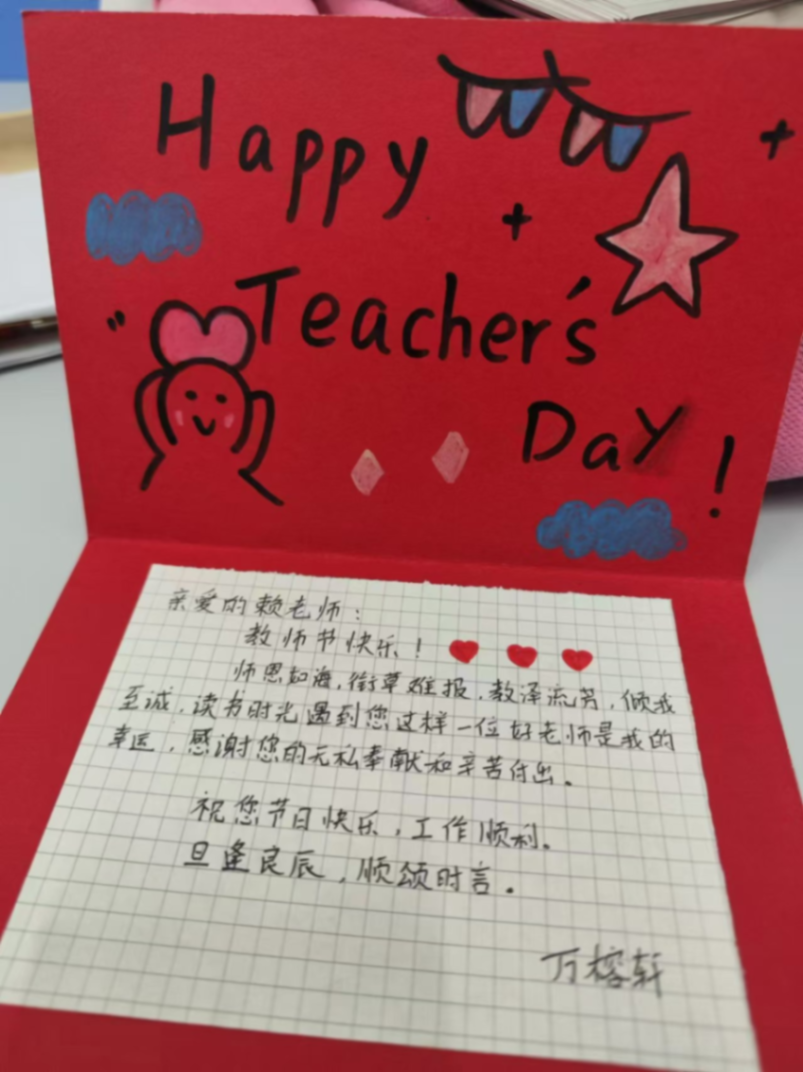 Happy
Teacher's
DaY!
亲爱的赖老师：
教师节快乐！
师恩如海，衔草难报，教泽流芳，倾我
至诚，读书时光遇到您这样一位好老师是我的
幸运，感谢您的无私奉献和辛苦付出。
祝您节日快乐，工作顺利。
旦逢良辰，顺颂时言。
万榕轩